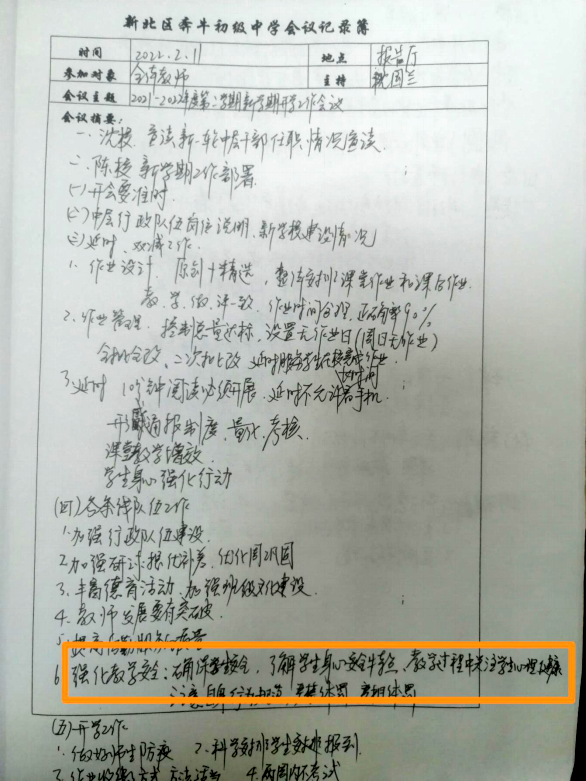 新北区奔牛初级中学会议记录簿
时间 2022.2.11 地点 报告厅
参加对象 全体教师 主持 沈国兰
会议主题 2021-2022年度第二学期新学期开学工作会议
会议摘要：
一、沈校 宣读新一轮中层干部任职情况宣读
二、陈校 新学期工作部署
(一)开会要准时
(二)中层行政队伍岗位说明、新学校建设情况
(三)延时、双减工作
1. 作业设计 原创+精选，整体安排课堂作业和课后作业
教、学、做、评一致 作业时间合理，正确率90%
2.作业管理 控制总量达标，设置无作业日(周日无作业)
全批全改、二次批改 延时服务学生在校完成作业
3.延时 10分钟阅读必须开展 延时不允许看手机
形成通报制度，量化，考核
课堂教学增效
学生身心强化行动
(四)各条线队伍工作
1.加强行政队伍建设
2.加强研讨，提优补差，优化周巩固
3.丰富德育活动 加强班级文化建设
4.教师发展要有突破
5.提高后勤服务质量
6 强化教学安全：确保学生安全，了解学生身心安全特点、教学过程中关注学生心理
注意自身行为规范 严禁体罚 变相体罚
(五)开学工作
1.做好师生防疫 2.科学安排学生报到
3.作业收缴方式 4.两周内不考试